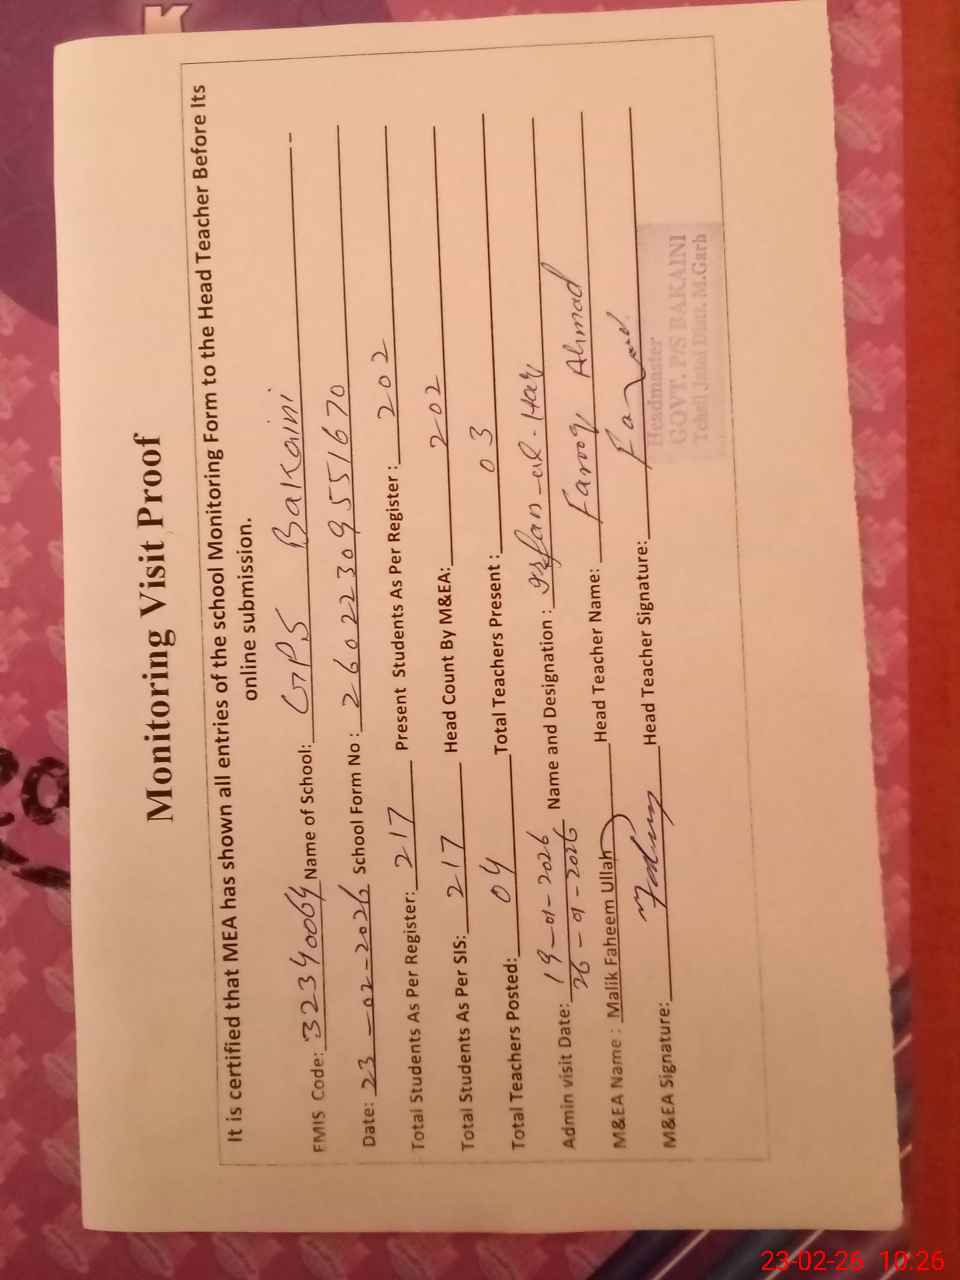 Monitoring Visit Proof
It is certified that MEA has shown all entries of the school Monitoring Form to the Head Teacher Before Its
online submission.
EMIS Code: 32340064 Name of School: GPS Bakaini
Date: 23-02-2026 School Form No : 2602230955 1670
Total Students As Per Register: 217 Present Students As Per Register : 202
Total Students As Per SIS: 217 Head Count By M&EA: 202
Total Teachers Posted: 04 Total Teachers Present : 03
Admin visit Date: 19-01-2026 Name and Designation : Irfan-ul-Haq
26-01-2026
M&EA Name : Malik Faheem Ullah Head Teacher Name: Farooq Ahmad
M&EA Signature: Head Teacher Signature:
Headmaster
GOVT. P/S BAKAINI
Tehsil Jatoi Distt. M.Garh
23-02-25 10:26